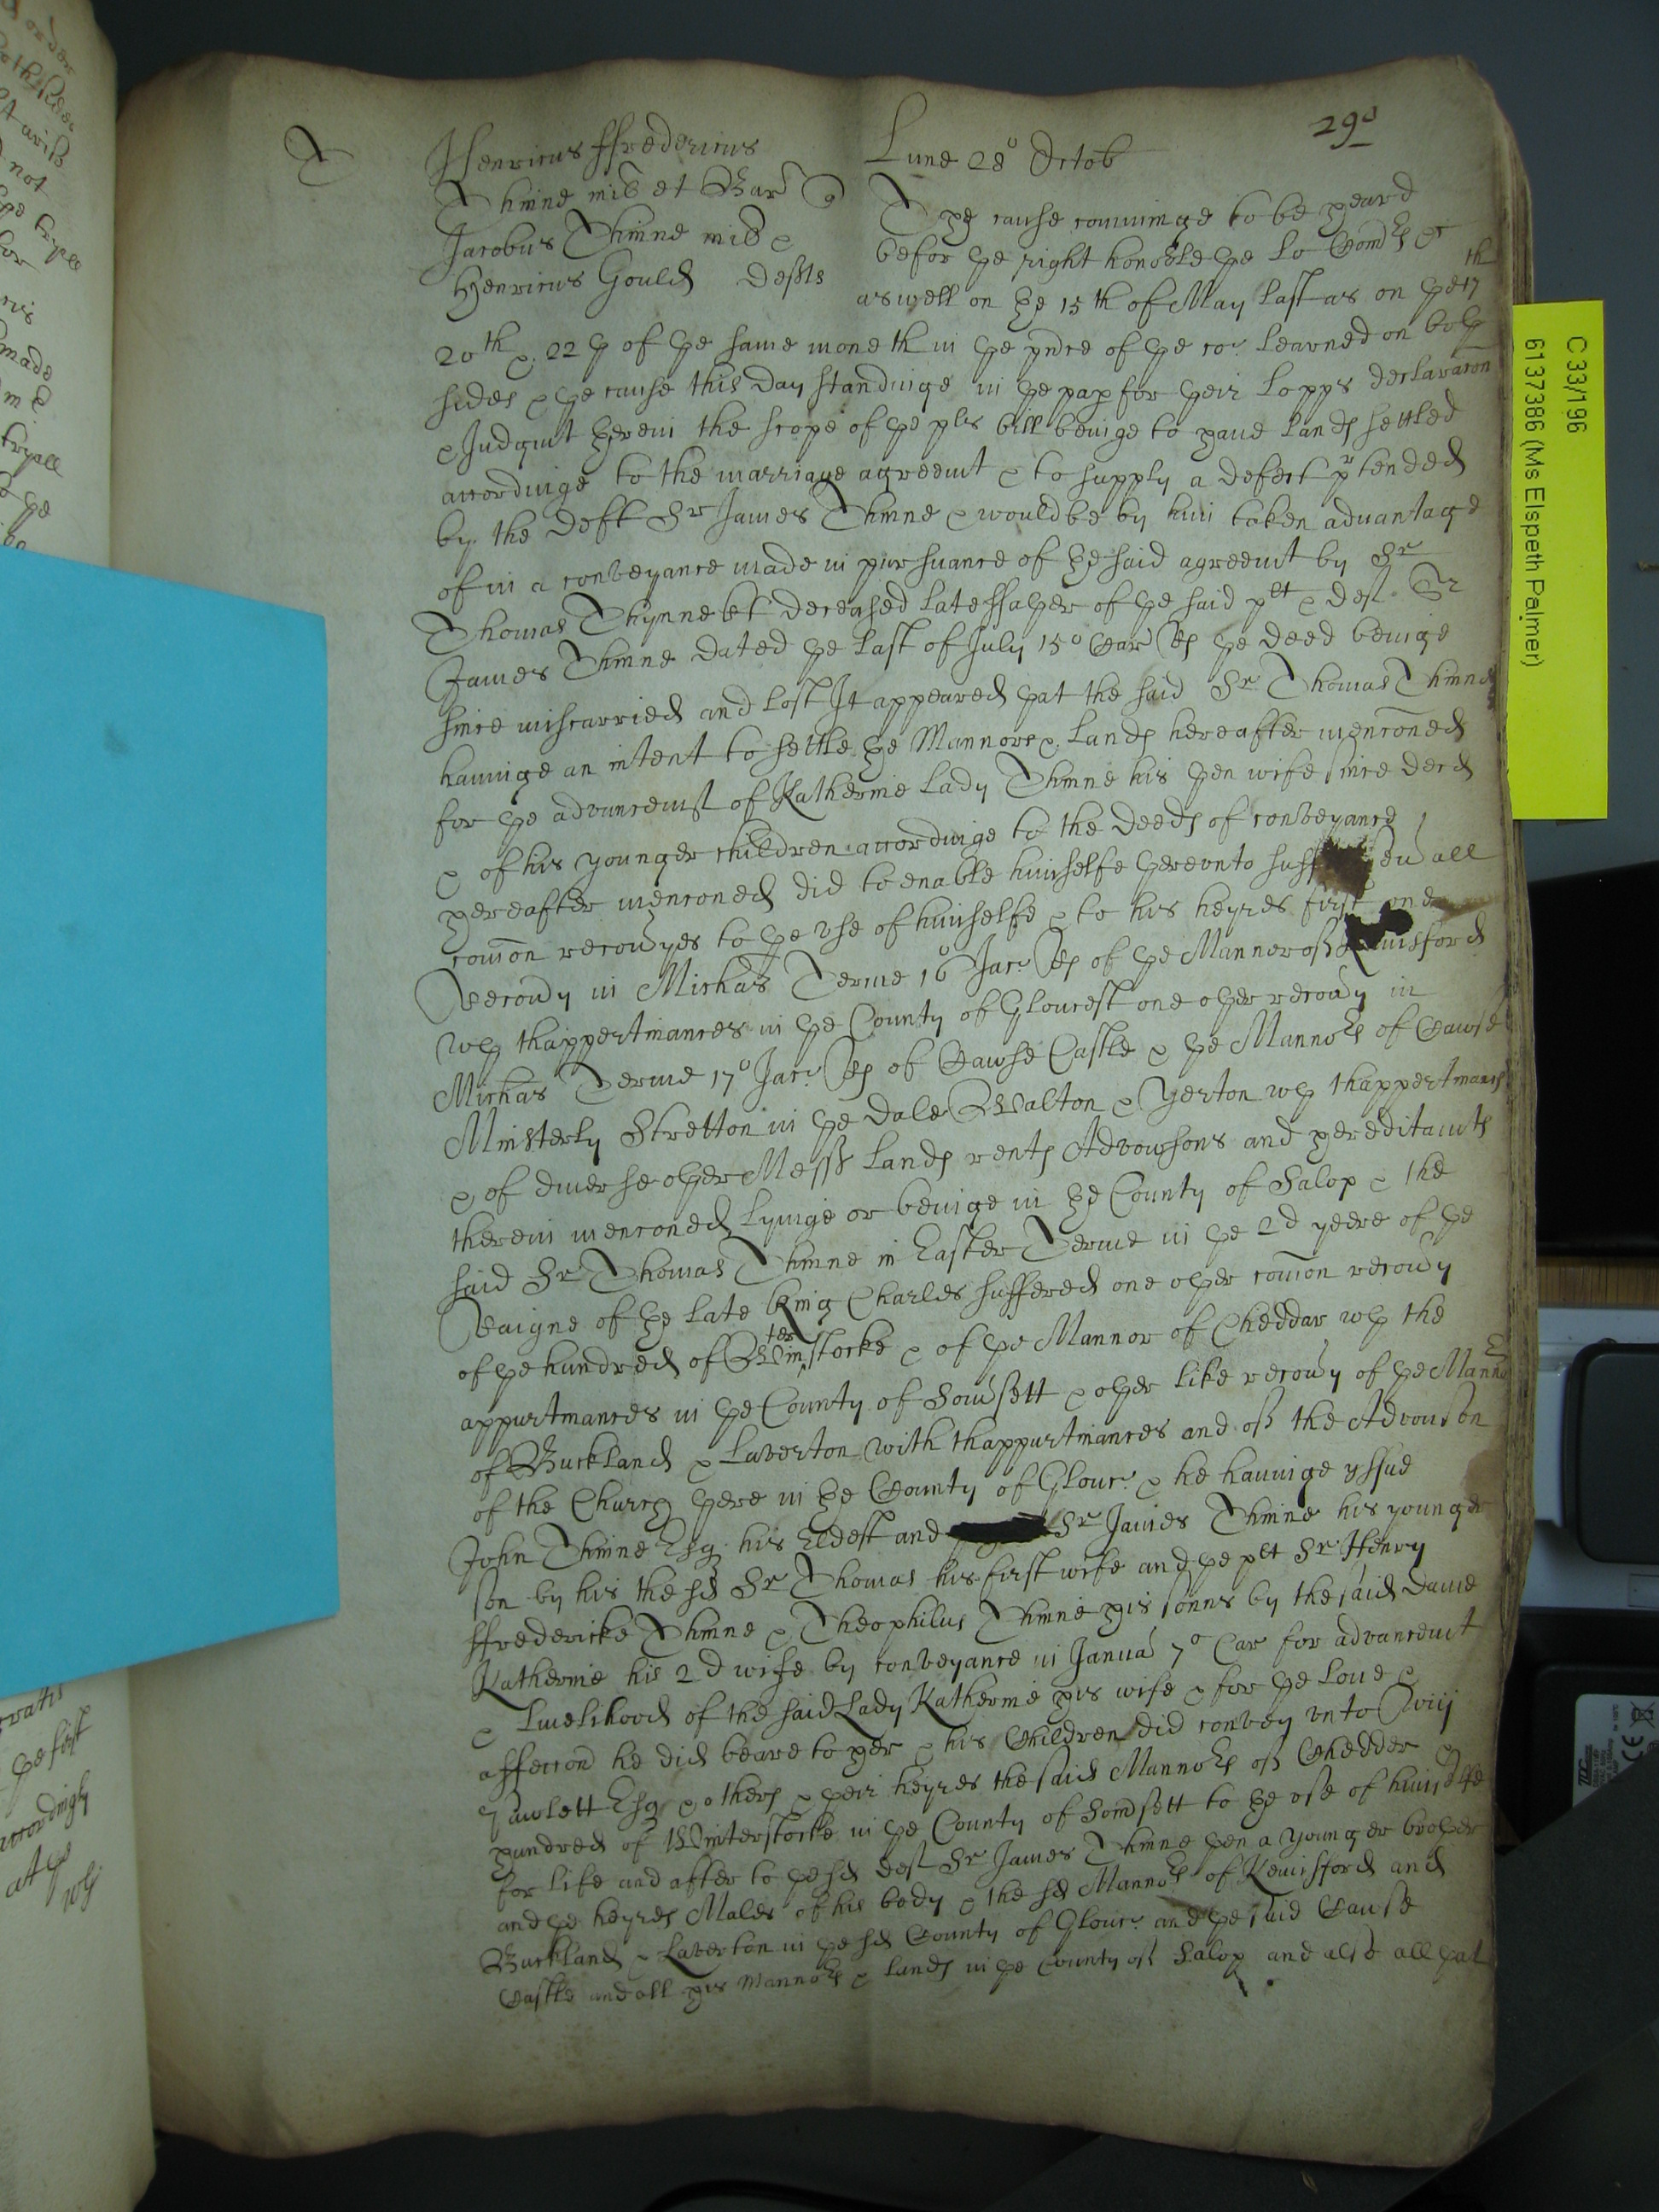 290
T
Henricus ffredericus
Thinne mil et Bart
Jacobus Thinne mil &
Henricus Gould Defts
Lune 28o Octob
The cause comminge to be heard
before the right honoble the Lo Comrs &c
aswell on the 15th of May last as on the 17th
20th & 22th of the same moneth in the pnce of the co: learned on both
sides & the cause this day standinge in the pap for their Lopps declaracon
& Judgmt therein the scope of the pls bill beinge to haue lands settled
accordinge to the marriage agreemt & to supply a defect prtended
by the deft Sr James Thinne & would be by him taken aduantage
of in a conveyance made in pursuance of the said agreemt by Sr
Thomas Thynne kt deceased late ffather of the said plt & deft Sr
James Thinne dated the last of July 15o Car Rs the deed beinge
since miscarried and lost It appeared that the said Sr Thomas Thinne
hauinge an intent to settle the Mannors & lands hereafter menconed
for the advancemt of Katherine Lady Thinne his then wife since decd
& of his younger children accordinge to the deeds of conveyance
hereafter menconed did to enable himselfe therevnto suff all
comon recouyes to the vse of himselfe & to his heyres first one
Recouy in Michas Terme 16o Jac: Rs of the Mannor of
wth thappertinances in the County of Gloucest one other recouy in
Michas Terme 17o Jac: Rs of Cawse Castle & the Mannors of Cawse
Minsterly Stretton in the dale Walton & Yerton wth thappertinancs
& of diuerse other Mess lands rents Advowsons and hereditamts
therein menconed lyinge or beinge in the County of Salop & the
said Sr Thomas Thinne in Easter Terme in the 2d yeere of the
Raigne of the late King Charles suffered one other comon recouy
of the hundred of Winterstocke & of the Mannor of Cheddar wth the
appurtinances in the County of Somsett & other like recouy of the Mannors
of Buckland & Laverton with thappurtinances and of the Advowson
of the Church there in the County of Glouc: & he hauinge yssue
John Thinne Esq his Eldest and Sr James Thinne his younger
son by his the sd Sr Thomas his first wife and the plt Sr Henry
ffredericke Thinne & Theophilus Thinne his sonns by the said Dame
Katherine his 2d wife by conveyance in Janua 7o Car for advancemt
& livelihood of the said Lady Katherine his wife & for the loue &
affeccon he did beare to her & his Children did convey vnto
Pawlett Esq & others & their heyres the said Mannors of Chedder &
hundred of Winterstocke in the County of Somsett to the vse of himselfe
for life and after to the sd deft Sr James Thinne then a younger brother
and the heyres Males of his body & the sd Mannors of Kemisford and
Buckland & Laverton in the sd County of Glouc: and the said Cawse
Castle and all his Mannors & lands in the County of Salop and also all that
C 33/196
6137386 (Ms Elspeth Palmer)